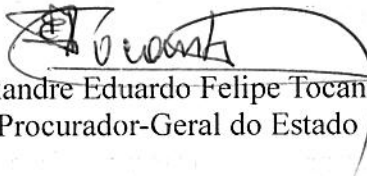 andre Eduardo Felipe Tocan
Procurador-Geral do Estado